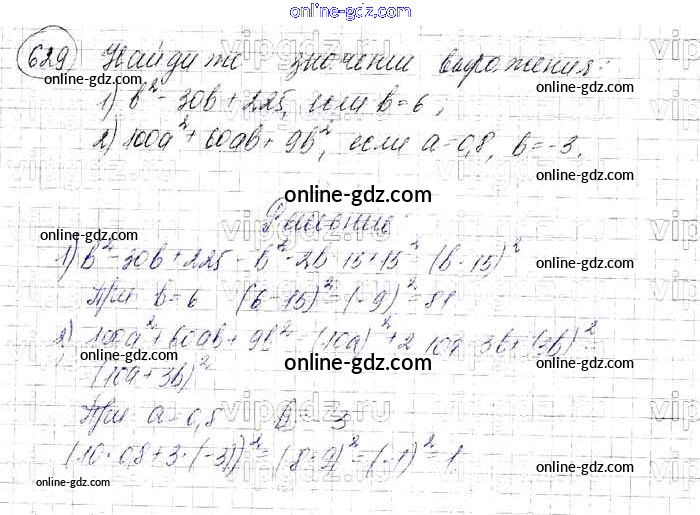 online-gdz.com
629 Найдите значение выражения:
online-gdz.com
1) b² - 30b + 225, если b = 6;
online-gdz.com
2) 100a² + 60ab + 9b², если a = 0,8, b = -3.
online-gdz.com
online-gdz.com
Решение:
online-gdz.com
1) b² - 30b + 225 = b² - 2b · 15 + 15² = (b - 15)²
online-gdz.com
При b = 6 (6 - 15)² = (-9)² = 81
2) 100a² + 60ab + 9b² = (10a)² + 2 · 10a · 3b + (3b)² =
online-gdz.com
online-gdz.com
online-gdz.com
(10a + 3b)²
При a = 0,8 b = -3
online-gdz.com
online-gdz.com
(10 · 0,8 + 3 · (-3))² = (8 - 9)² = (-1)² = 1
online-gdz.com
online-gdz.com